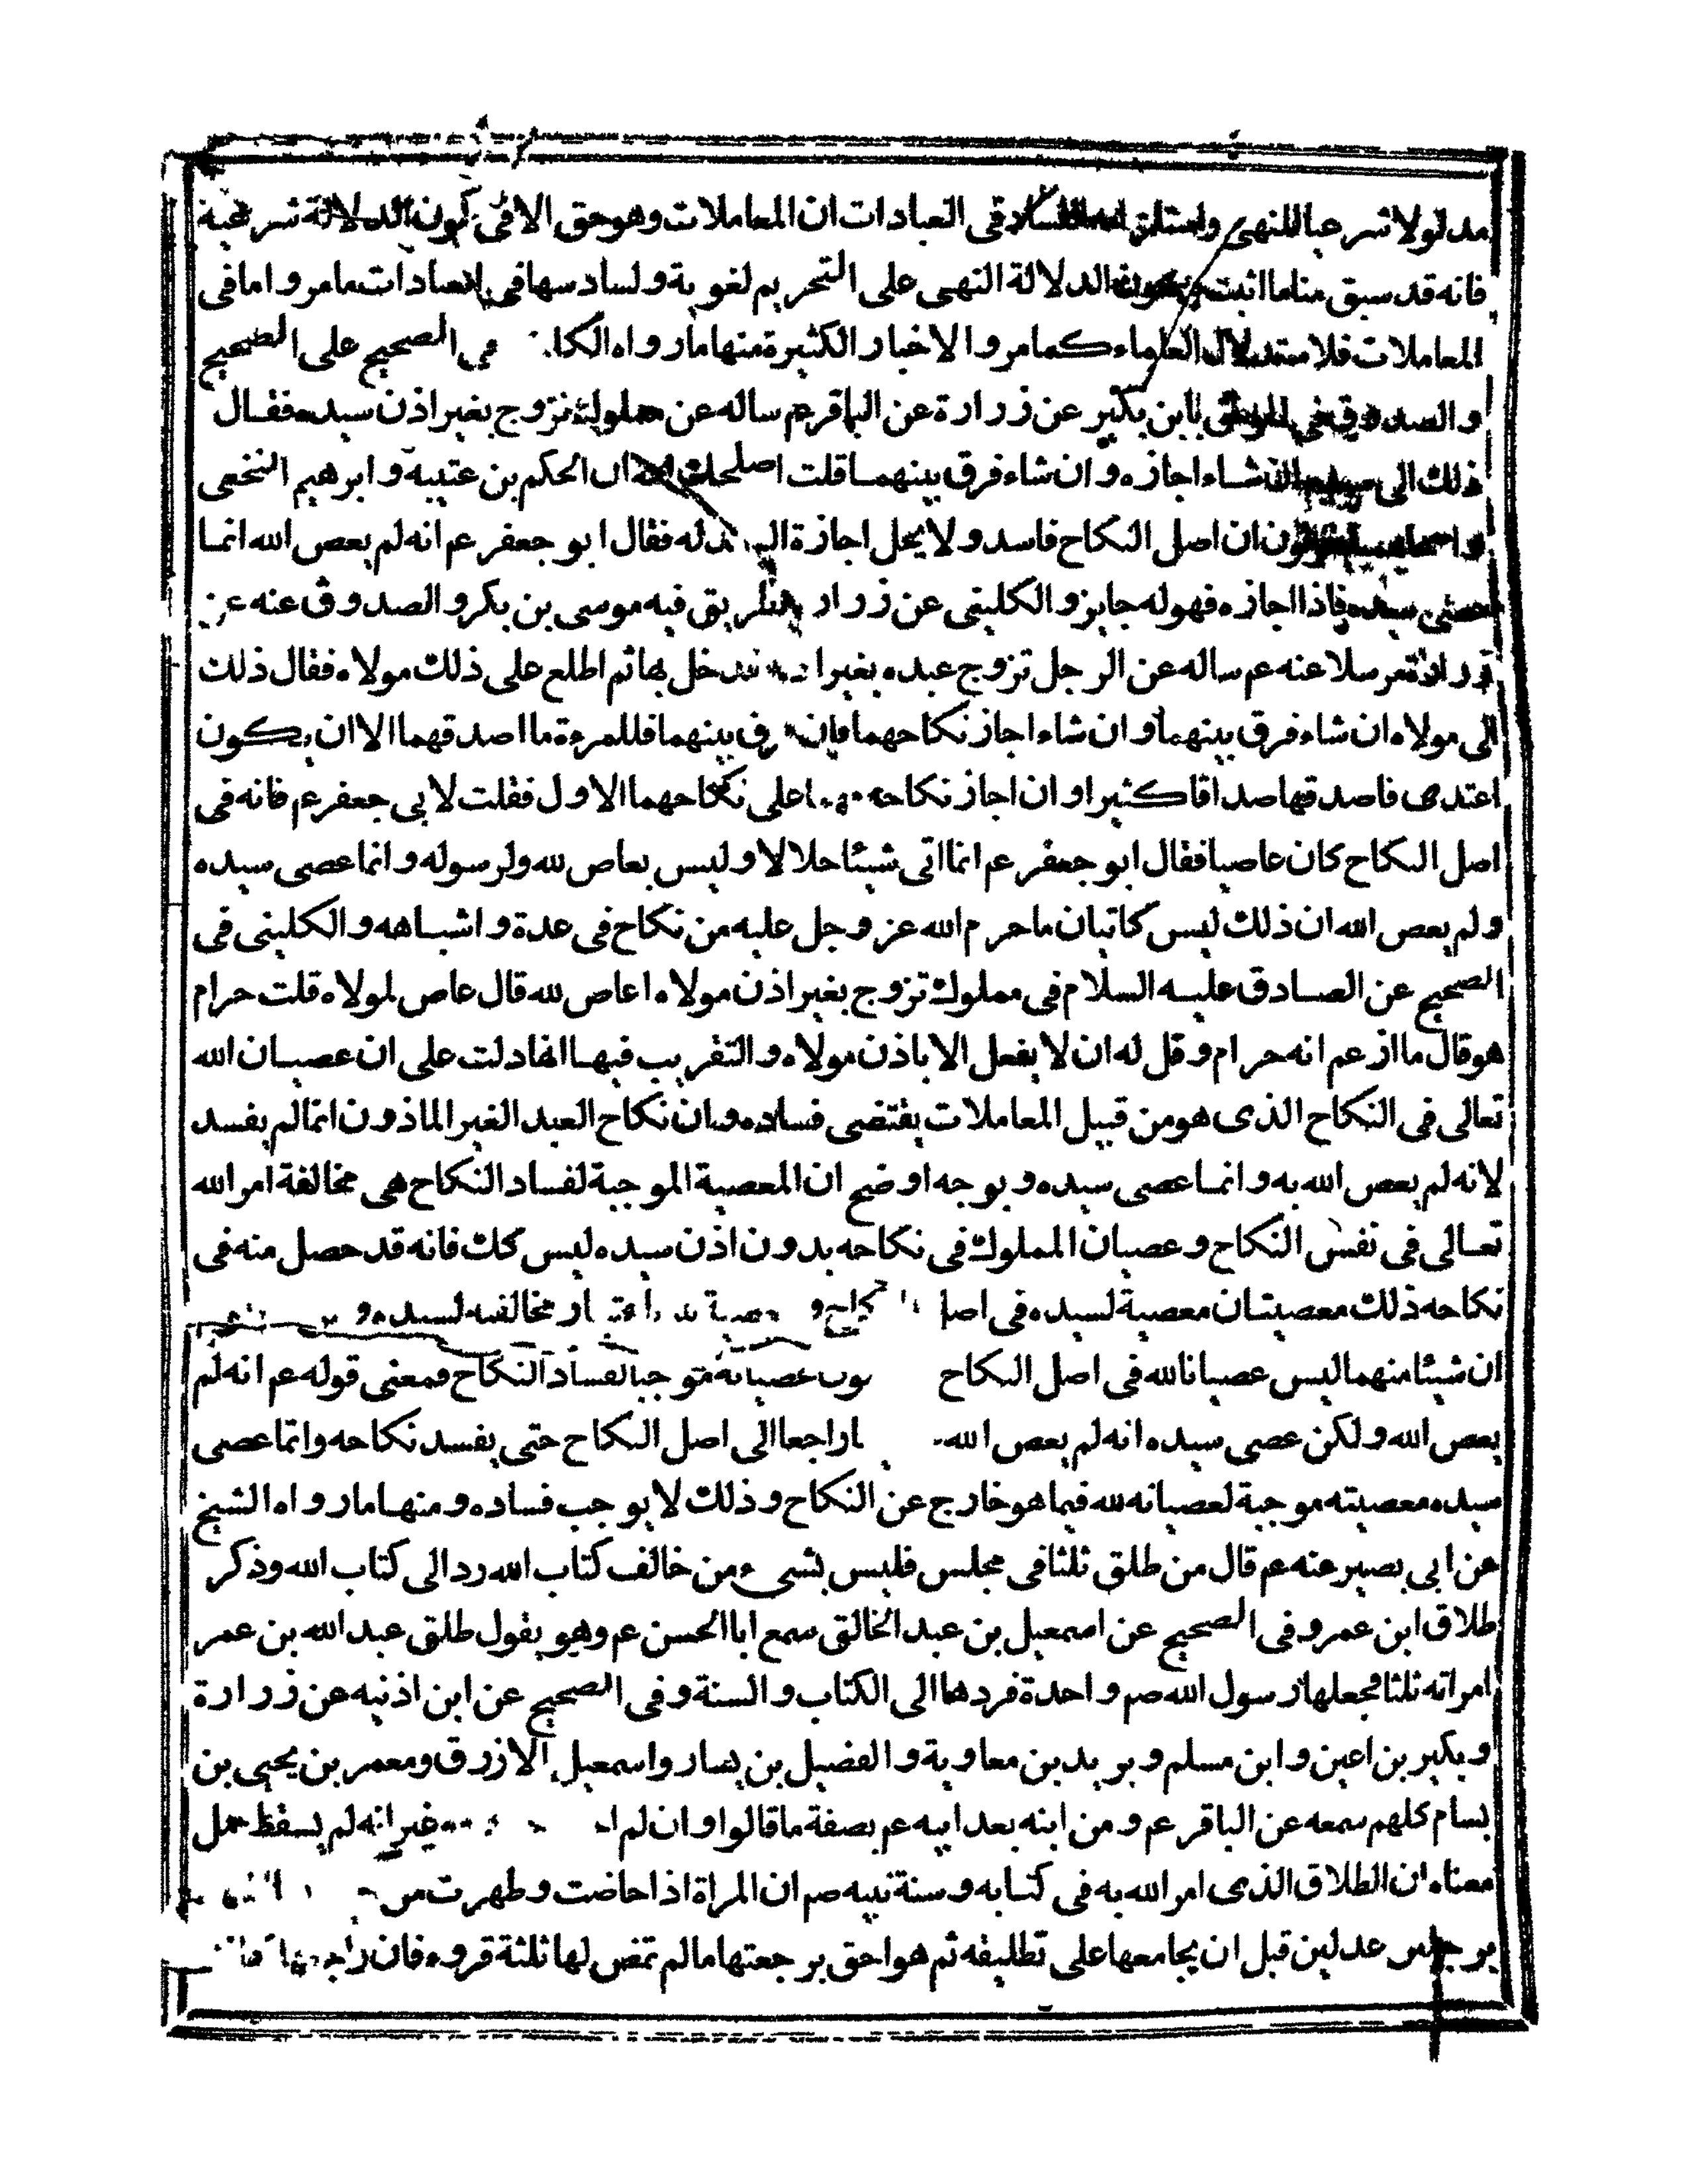 مدلولا شرعيا للنهى واستلزامه الفساد فى العبادات ان المعاملات وهو حق الا فى كون الدلالة شرعية
فانه قد سبق منا ما اثبت الدلالة النهى على التحريم لغوية ولساد سها فى العبادات مامر واما فى
المعاملات فلاستدلال العلماء كمامر والاخبار الكثيرة منها مارواه فى الصحيح على الصحيح
والصدوق فى الموثق بابن بكير عن زرارة عن الباقر عم ساله عن مملوك تزوج بغير اذن سيده فقال
ذلك الى سيده ان شاء اجازه وان شاء فرق بينهما قلت اصلحك الله ان الحكم بن عتيبه وابرهيم النخعى
واصحابهما يقولون ان اصل النكاح فاسد ولا يحل اجازة السيد له فقال ابو جعفر عم انه لم يعص الله انما
عصى سيده فاذا اجازه فهو له جايز والكلينى عن زرارة بطريق فيه موسى بن بكر والصدوق عنه عن
زرارة مرسلا عنه عم ساله عن الرجل تزوج عبده بغير اذنه فدخل بها ثم اطلع على ذلك مولاه فقال ذلك
الى مولاه ان شاء فرق بينهما وان شاء اجاز نكاحهما فان فرق بينهما فللمرءة ما اصدقهما الا ان يكون
اعتدى فاصدقها صداقا كثيرا وان اجاز نكاحه فهما على نكاحهما الاول فقلت لابى جعفر عم فانه فى
اصل النكاح كان عاصيا فقال ابو جعفر عم انما اتى شيئا حلالا وليس بعاص لله ولرسوله وانما عصى سيده
ولم يعص الله ان ذلك ليس كاتيان ما حرم الله عز وجل عليه من نكاح فى عدة واشباهه والكلينى فى
الصحيح عن الصادق عليه السلام فى مملوك تزوج بغير اذن مولاه اعاص لله قال عاص لمولاه قلت حرام
هو قال ما ازعم انه حرام وقل له ان لا يفعل الا باذن مولاه والتقريب فيها انها دلت على ان عصيان الله
تعالى فى النكاح الذى هو من قبيل المعاملات يقتضى فساده وان نكاح العبد الغير الماذون انما لم يفسد
لانه لم يعص الله به وانما عصى سيده وبوجه اوضح ان المعصية الموجبة لفساد النكاح هى مخالفة امر الله
تعالى فى نفس النكاح وعصيان المملوك فى نكاحه بدون اذن سيده ليس كك فانه قد حصل منه فى
نكاحه ذلك معصيتان معصية لسيده فى اصل النكاح و باعتبار مخالفته لسيده و
ان شيئا منهما ليس عصيانا لله فى اصل النكاح عصيانه موجبا لفساد النكاح فمعنى قوله عم انه لم
يعص الله ولكن عصى سيده انه لم يعص الله راجعا الى اصل النكاح حتى يفسد نكاحه وانما عصى
سيده معصيته موجبة لعصيانه لله فيما هو خارج عن النكاح وذلك لا يوجب فساده ومنها مارواه الشيخ
عن ابى بصير عنه عم قال من طلق ثلثا فى مجلس فليس بشىء من خالف كتاب الله رد الى كتاب الله وذكر
طلاق ابن عمر وفى الصحيح عن اسمعيل بن عبد الخالق سمع ابا الحسن عم وهو يقول طلق عبد الله بن عمر
امراته ثلثا فجعلها رسول الله صم واحدة فردها الى الكتاب والسنة وفى الصحيح عن ابن اذنيه عن زرارة
وبكير بن اعين وابن مسلم وبريد بن معاوية والفضيل بن يسار واسمعيل الازرق ومعمر بن يحيى بن
بسام كلهم سمعه عن الباقر عم ومن ابنه بعد ابيه عم بصفة ما قالوا وان لم غير انه لم يسقط جمل
معناه ان الطلاق الذى امر الله به فى كتابه وسنة نبيه صم ان المراة اذا حاضت وطهرت من
برجلين عدلين قبل ان يجامعها على تطليقه ثم هو احق برجعتها ما لم تمض لها ثلثة قروء فان راجعها